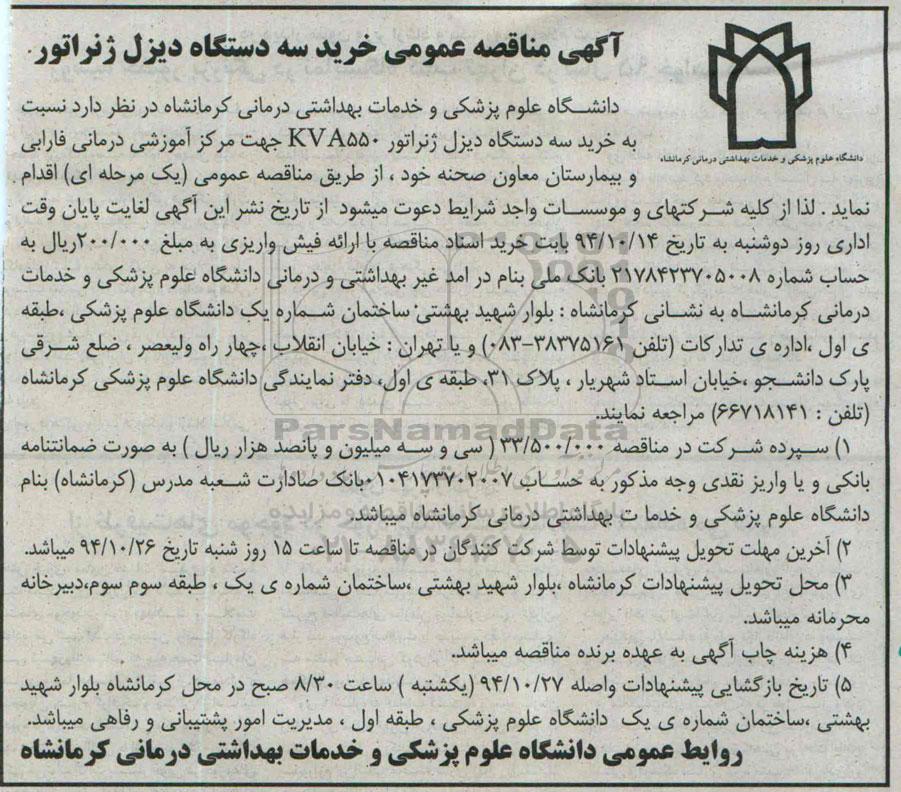 آگهی مناقصه عمومی خرید سه دستگاه دیزل ژنراتور
دانشگاه علوم پزشکی و خدمات بهداشتی درمانی کرمانشاه
دانشگاه علوم پزشکی و خدمات بهداشتی درمانی کرمانشاه در نظر دارد نسبت
به خرید سه دستگاه دیزل ژنراتور KVA۵۵۰ جهت مرکز آموزشی درمانی فارابی
و بیمارستان معاون صحنه خود ، از طریق مناقصه عمومی (یک مرحله ای) اقدام
نماید . لذا از کلیه شرکتهای و موسسات واجد شرایط دعوت میشود از تاریخ نشر این آگهی لغایت پایان وقت
اداری روز دوشنبه به تاریخ ۹۴/۱۰/۱۴ بابت خرید اسناد مناقصه با ارائه فیش واریزی به مبلغ ۲۰۰/۰۰۰ریال به
حساب شماره ۲۱۷۸۴۲۳۷۰۵۰۰۸ بانک ملی بنام در امد غیر بهداشتی و درمانی دانشگاه علوم پزشکی و خدمات
درمانی کرمانشاه به نشانی کرمانشاه : بلوار شهید بهشتی ساختمان شماره یک دانشگاه علوم پزشکی ،طبقه
ی اول ،اداره ی تدارکات (تلفن ۳۸۳۷۵۱۶۱-۰۸۳) و یا تهران : خیابان انقلاب ،چهار راه ولیعصر ، ضلع شرقی
پارک دانشجو ،خیابان استاد شهریار ، پلاک ۳۱، طبقه ی اول، دفتر نمایندگی دانشگاه علوم پزشکی کرمانشاه
(تلفن : ۶۶۷۱۸۱۴۱) مراجعه نمایند.
ParsNamadData
۱) سپرده شرکت در مناقصه ۳۳/۵۰۰/۰۰۰ ( سی و سه میلیون و پانصد هزار ریال ) به صورت ضمانتنامه
بانکی و یا واریز نقدی وجه مذکور به حساب ۰۱۰۴۱۷۳۷۰۲۰۰۷بانک صادارت شعبه مدرس (کرمانشاه) بنام
دانشگاه علوم پزشکی و خدما ت بهداشتی درمانی کرمانشاه میباشد.
۲) آخرین مهلت تحویل پیشنهادات توسط شرکت کنندگان در مناقصه تا ساعت ۱۵ روز شنبه تاریخ ۹۴/۱۰/۲۶ میباشد.
۳) محل تحویل پیشنهادات کرمانشاه ،بلوار شهید بهشتی ،ساختمان شماره ی یک ، طبقه سوم سوم،دبیرخانه
محرمانه میباشد.
۴) هزینه چاپ آگهی به عهده برنده مناقصه میباشد.
۵) تاریخ بازگشایی پیشنهادات واصله ۹۴/۱۰/۲۷ (یکشتبه ) ساعت ۸/۳۰ صبح در محل کرمانشاه بلوار شهید
بهشتی ،ساختمان شماره ی یک دانشگاه علوم پزشکی ، طبقه اول ، مدیریت امور پشتیبانی و رفاهی میباشد.
روابط عمومی دانشگاه علوم پزشکی و خدمات بهداشتی درمانی کرمانشاه